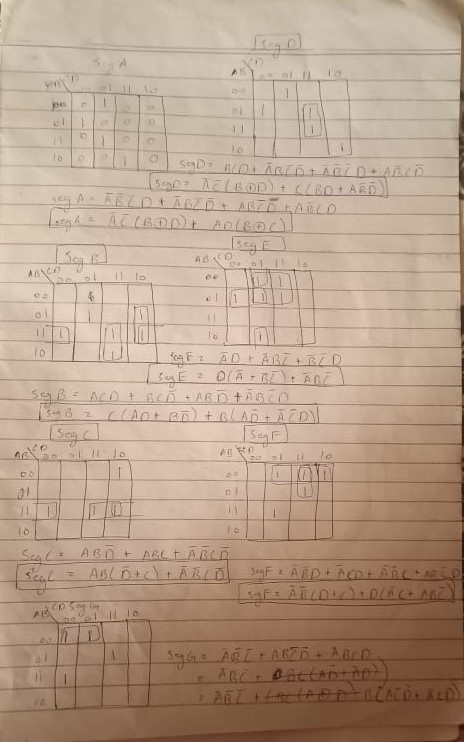 Seg D
Seg A
AB\CD 00 01 11 10
00 0 1 0 0
01 1 0 0 0
11 0 1 0 0
10 0 0 1 0
AB\CD 00 01 11 10
00 1
01 1 1
11 1
10 1
SegD = BCD + ĀBC̄D̄ + ĀB̄C̄D + AB̄CD̄
SegD = ĀC̄(B⊕D) + C(BD + AB̄D̄)
SegA = ĀB̄C̄D + ĀBC̄D̄ + ABC̄D + AB̄CD
SegA = ĀC̄(B⊕D) + AD(B⊕C)
Seg B
Seg E
AB\CD 00 01 11 10
00
01 1 1
11 1 1 1
10 1
AB\CD 00 01 11 10
00 1 1
01 1 1 1
11
10 1
SegE = ĀD + ĀBC̄ + B̄C̄D
SegE = D(Ā + B̄C̄) + ĀBC̄
SegB = ACD + BCD̄ + ABD̄ + ĀBC̄D
SegB = C(AD + BD̄) + B(AD̄ + ĀC̄D)
Seg C
Seg F
AB\CD 00 01 11 10
00 1
01
11 1 1 1
10
AB\CD 00 01 11 10
00 1 1 1
01 1
11 1
10
SegC = ABD̄ + ABC + ĀB̄CD̄
SegC = AB(D̄+C) + ĀB̄CD̄
SegF = ĀB̄D + ĀCD + ĀB̄C + ABC̄D
SegF = ĀB̄(D+C) + D(ĀC + ABC̄)
AB\CD Seg G
00 01 11 10
00 1 1
01 1
11 1
10
SegG = ĀB̄C̄ + ABC̄D̄ + ĀBCD
= ĀB̄C̄ +
= ĀB̄C̄ + B(AC̄D̄ + ĀCD)